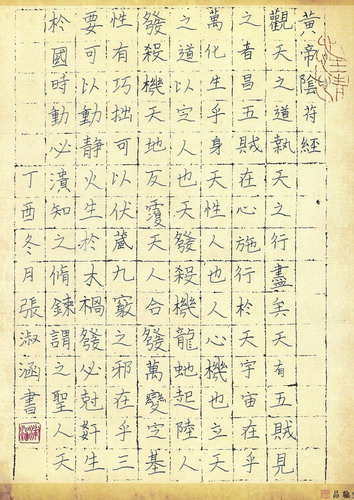 黃帝陰符經
觀天之道執天之行盡矣天有五賊見
之者昌五賊在心施行於天宇宙在乎
萬化生乎身天性人也人心機也立天
之道以定人也天發殺機龍虵起陸人
發殺機天地反覆天人合發萬變定基
性有巧拙可以伏藏九竅之邪在乎三
要可以動靜火生於木禍發必尅奸生
於國時動必潰知之脩鍊謂之聖人天
丁酉冬月張淑涵書